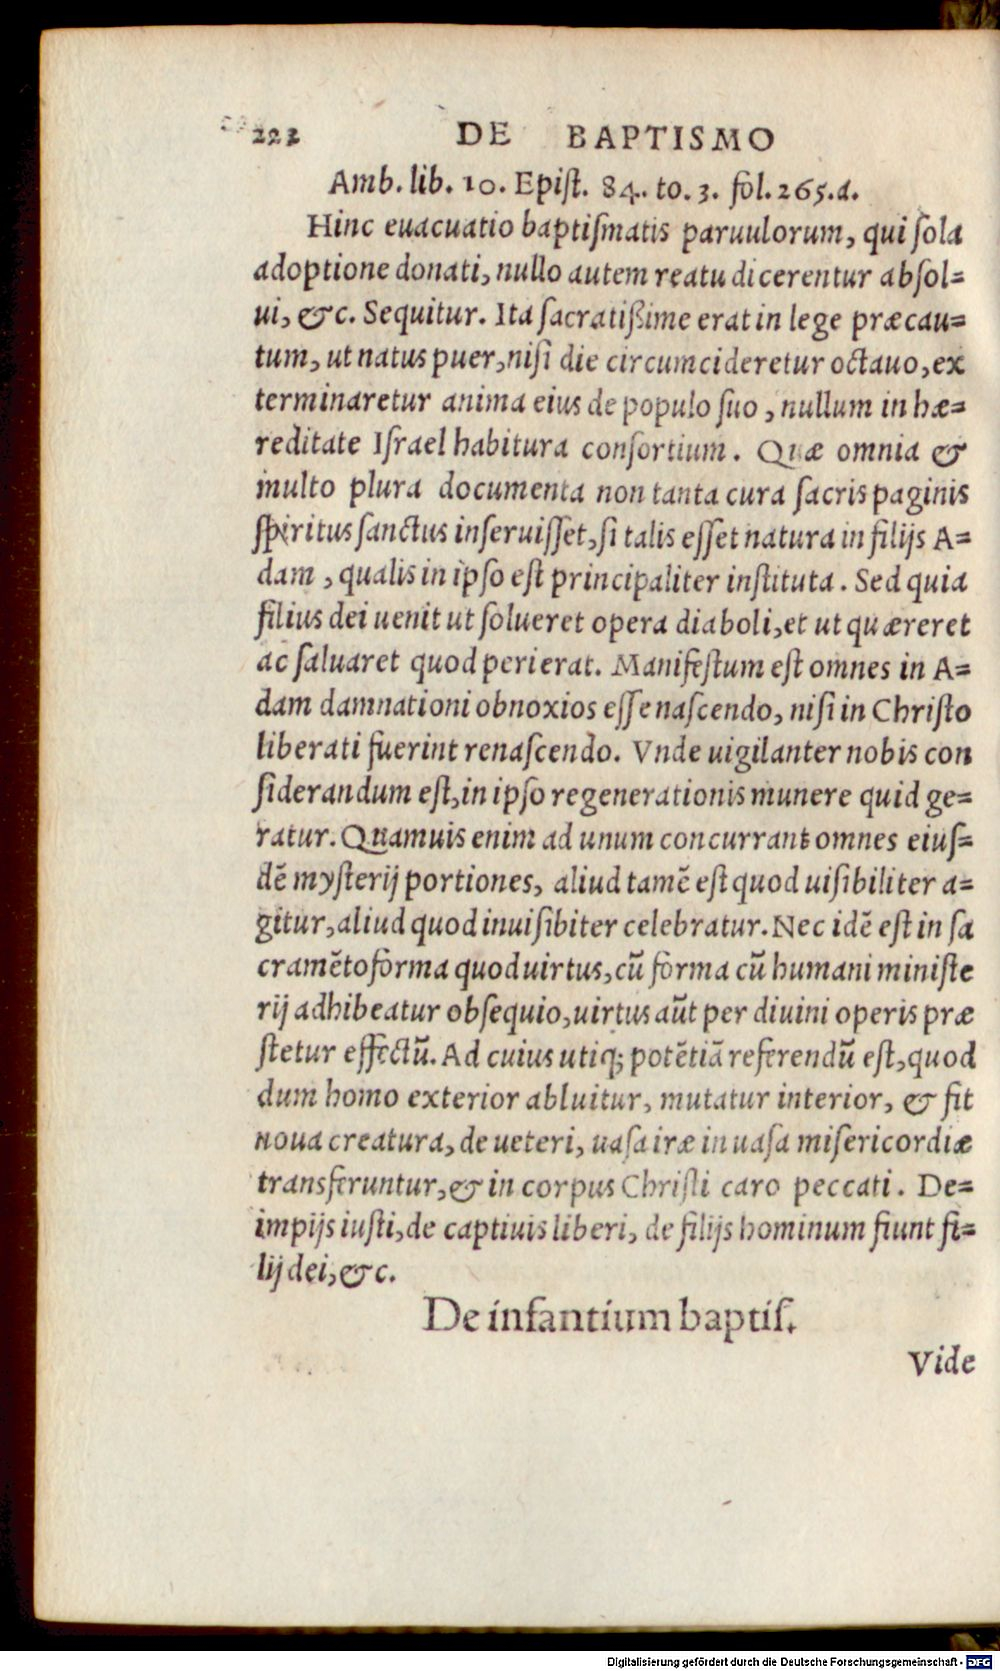 222 DE BAPTISMO
Amb. lib. 10. Epiſt. 84. to. 3. fol. 265.a.
Hinc euacuatio baptiſmatis paruulorum, qui ſola
adoptione donati, nullo autem reatu dicerentur abſol=
ui, &c. Sequitur. Ita ſacratißime erat in lege præcau=
tum, ut natus puer, niſi die circumcideretur octauo, ex
terminaretur anima eius de populo ſuo, nullum in hæ=
reditate Iſrael habitura conſortium. Quæ omnia &
multo plura documenta non tanta cura ſacris paginis
ſpiritus ſanctus inſeruiſſet, ſi talis eſſet natura in filijs A=
dam, qualis in ipſo eſt principaliter inſtituta. Sed quia
filius dei uenit ut ſolueret opera diaboli, et ut quæreret
ac ſaluaret quod perierat. Manifeſtum eſt omnes in A=
dam damnationi obnoxios eſſe naſcendo, niſi in Chriſto
liberati fuerint renaſcendo. Vnde uigilanter nobis con
ſiderandum eſt, in ipſo regenerationis munere quid ge=
ratur. Quamuis enim ad unum concurrant omnes eiuſ=
dē myſterij portiones, aliud tamē eſt quod uiſibiliter a=
gitur, aliud quod inuiſibiter celebratur. Nec idē eſt in ſa
cramēto forma quod uirtus, cū forma cū humani miniſte
rij adhibeatur obſequio, uirtus aūt per diuini operis præ
ſtetur effectū. Ad cuius utiq; potētiā referendū eſt, quod
dum homo exterior abluitur, mutatur interior, & fit
noua creatura, de ueteri, uaſa iræ in uaſa miſericordiæ
transferuntur, & in corpus Chriſti caro peccati. De=
impijs iuſti, de captiuis liberi, de filijs hominum fiunt fi=
lij dei, &c.
De infantium baptiſ.
Vide
Digitalisierung gefördert durch die Deutsche Forschungsgemeinschaft - DFG